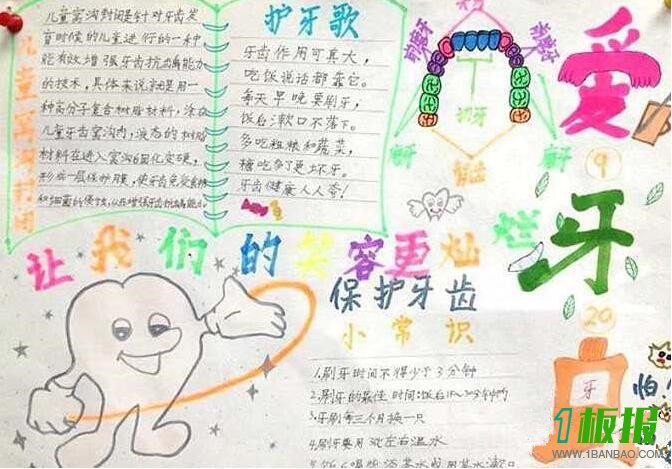 儿童窝沟封闭
儿童窝沟封闭是针对牙齿发
育时候的儿童进行的一种
能有效增强牙齿抗龋能力
的技术,具体来说就是用一
种高分子复合树脂材料,涂在
儿童牙齿窝沟内,液态的树脂
材料在进入窝沟后固化变硬,
形成一层保护膜,使牙齿免受食物
和细菌的侵蚀,从而增强牙齿抗龋能力。
护牙歌
牙齿作用可真大,
吃饭说话都靠它。
每天早晚要刷牙,
饭后漱口不落下。
多吃粗粮和蔬菜,
糖吃多了更坏牙。
牙齿健康人人夸!
前磨牙
前磨牙
切牙
磨牙
磨牙
智齿
爱
9
牙
20
让我们的笑容更灿烂
保护牙齿
小常识
1.刷牙时间不得少于3分钟
2.刷牙的最佳时间:饭后
3.牙刷每三个月换一只
4.刷牙要用 左右温水
牙
怕
1板报
WWW.1BANBAO.COM